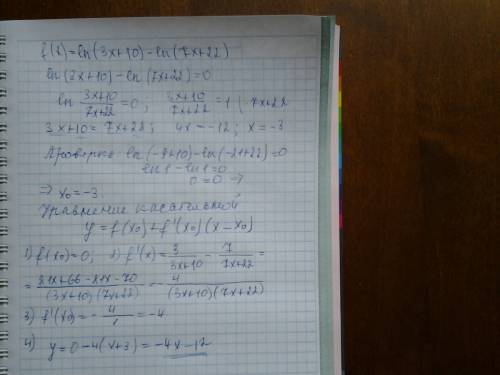 f(x)=ln(3x+10)-ln(7x+22)
ln(3x+10)-ln(7x+22)=0
ln (3x+10)/(7x+22)=0; (3x+10)/(7x+22)=1 | ·7x+22
3x+10=7x+22; 4x=-12; x=-3
Проверка: ln(-9+10)-ln(-21+22)=0
ln1-ln1=0
0=0 ⇒
⇒ x₀=-3
Уравнение касательной
y=f(x₀)+f'(x₀)(x-x₀)
1) f(x₀)=0; 2) f'(x)=3/(3x+10)-7/(7x+22)=
=(21x+66-21x-70)/((3x+10)(7x+22))=-4/((3x+10)(7x+22))
3) f'(x₀)=-4/1=-4
4) y=0-4(x+3)=-4x-12